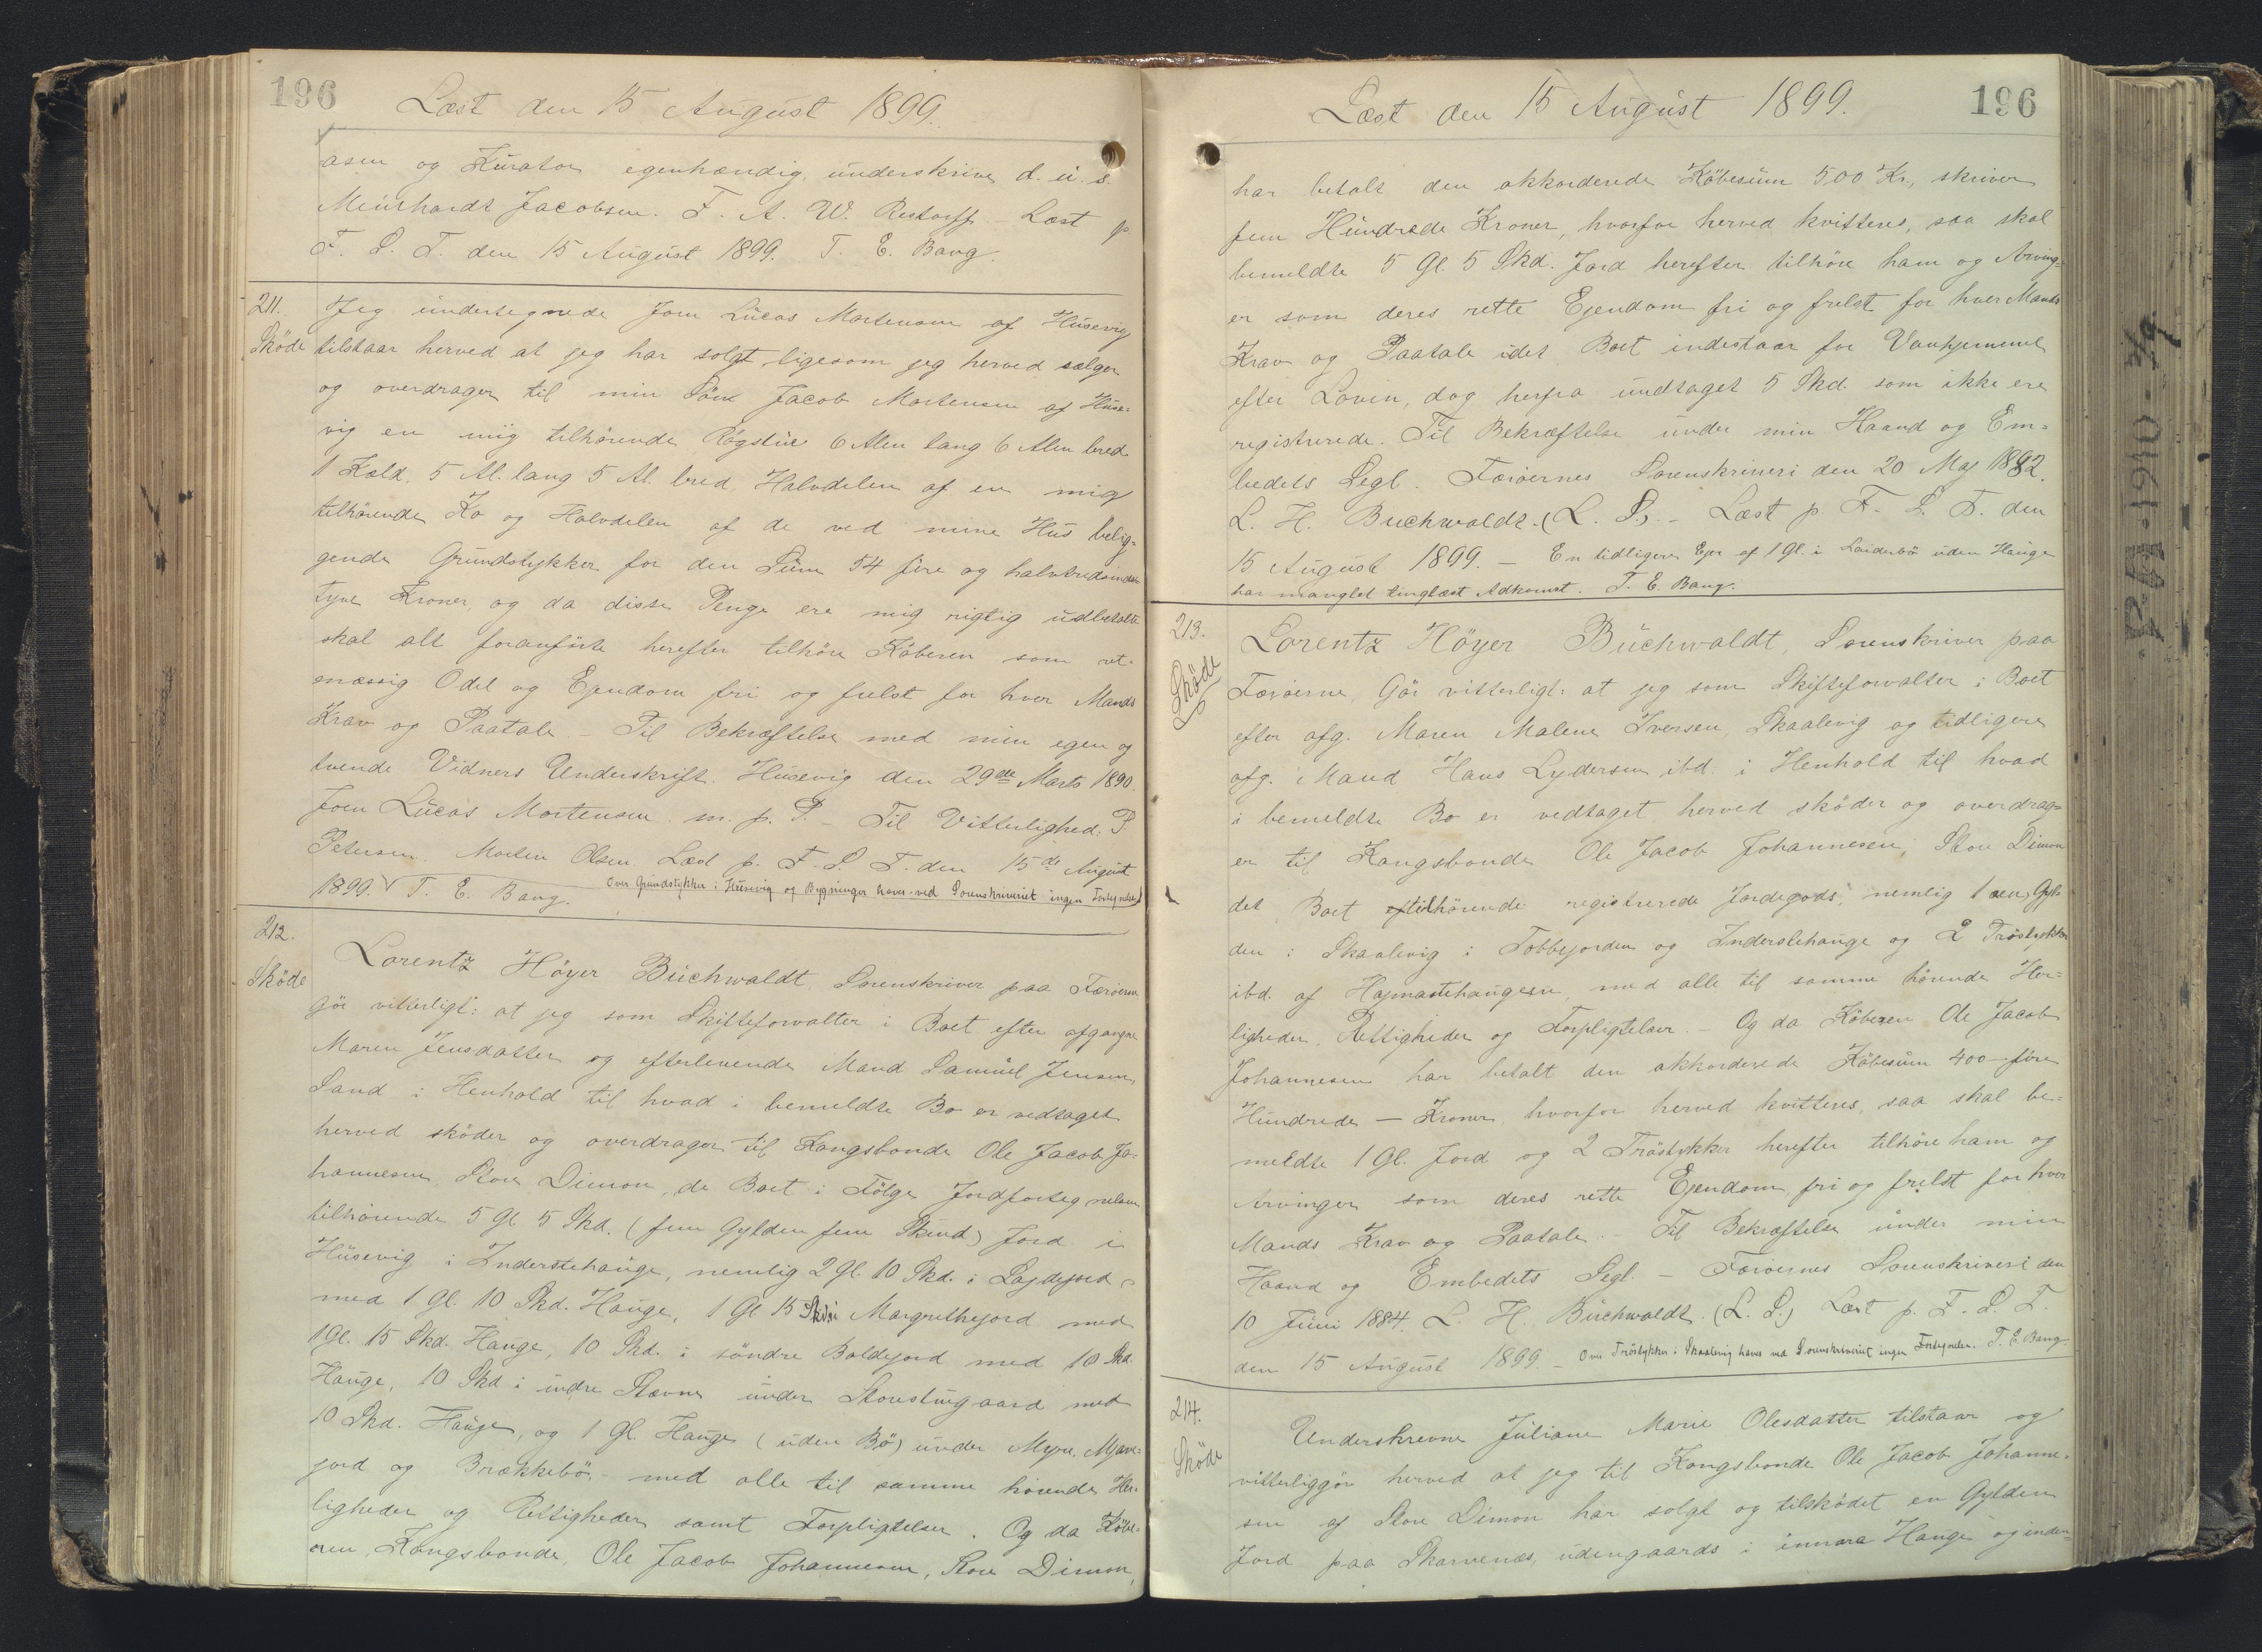 196
Læst den 15 August 1899.
asen og Kurator egenhændig underskrive d. u. s.
Meinhardt Jacobsen. F. A. W. Restorff - Læst p.
F. S. T. den 15 August 1899. T. E. Bang.
211.
Sköde
Jeg undertegnede Joen Lucas Mortensen af Husevig
tilstaar herved at jeg har solgt ligesom jeg herved sælger
og overdrager til min Sön Jacob Mortensen af Huse-
vig en mig tilhörende Rögstue 6 Alen lang 6 Alen bred
1 Kald. 5 Al. lang 5 Al. bred, Halvdelen af en mig
tilhörende Ko og Halvdelen af de ved mine Hus belig-
gende Grundstykker for den Sum 54 fire og halvtredsinds-
tyve Kroner, og da disse Penge ere mig rigtig udbetalte
skal alt foranförte herefter tilhöre Köberen som ret-
mæssig Odel og Ejendom fri og frelst for hver Mands
Krav og Paatale. - Til Bekræftelse med min egen og
tvende Vidners Underskrift. Husevig den 29de Marts 1890.
Joen Lucas Mortensen. m. p. P. - Til Vitterlighed: P.
Petersen. Morten Olsen. Læst p. F. S. T. den 15de August
1899. T. E. Bang. Over Grundstykker i Husevig og Bygninger haves ved Sorenskriveriet ingen Fortegnelse
212.
Sköde
Lorentz Höyer Buchwaldt, Sorenskriver paa Færöerne
Gör vitterligt: at jeg som Skifteforvalter i Boet efter afgangne
Maren Jensdatter og efterlevende Mand Samuel Jensen,
Sand i Henhold til hvad i bemeldte Bo er vedtaget
herved sköder og overdrager til Kongsbonde Ole Jacob Jo-
hannesen, Store Dimon, de Boet i Fölge Jordfortegnelsen
tilhörende 5 Gl. 5 Skd. (fem Gylden fem Skind) Jord i
Husevig i Inderstehauge, nemlig 2 Gl. 10 Skd. i Lajdejord
med 1 Gl. 10 Skd. Hauge, 1 Gl 15 Skd i Margrethejord med
1 Gl. 15 Skd. Hauge, 10 Skd. i söndre Boldejord med 10 Skd.
Hauge, 10 Skd i indre Stævne under Storestuegaard med
10 Skd. Hauge, og 1 Gl. Hauge (uden Bö) under Myre, Mjave-
jord og Brækkebö - med alle til samme hörende Her-
ligheder og Rettigheder samt Forpligtelser. Og da Köbe-
ren, Kongsbonde, Ole Jacob Johannesen, Store Dimon,
Læst den 15 August 1899.
196
har betalt den akkorderede Köbesum 500 Kr., skriver
fem Hundrede Kroner, hvorfor herved kvitteres, saa skal
bemeldte 5 Gl. 5 Skd. Jord herefter tilhöre ham og Arving-
er som deres rette Ejendom fri og frelst for hver Mands
Krav og Paatale idet Boet indestaar for Vanhjemmel
efter Loven, dog herfra undtaget 5 Skd. som ikke ere
registrerede. Til Bekræftelse under min Haand og Em-
bedets Segl. Færöernes Sorenskriveri den 20 Maj 1882.
L. H. Buchwaldt. (L. S.). - Læst p. F. S. T. den
15 August 1899. - En tidligere Ejer af 1 Gl. i Laidebö uden Hauge
har manglet tinglæst Adkomst. T. E. Bang.
213.
Sköde
Lorentz Höyer Buchwaldt, Sorenskriver paa
Færöerne, Gör vitterligt: at jeg som Skifteforvalter i Boet
efter afg. Maren Malene Iversen, Skaalevig og tidligere
afg. Mand Hans Lydersen ibd. i Henhold til hvad
i bemeldte Bo er vedtaget herved sköder og overdrag-
er til Kongsbonde Ole Jacob Johannesen, Store Dimon
det Boet tilhörende registrerede Jordegods, nemlig 1 een Gyl-
den i Skaalevig i Tobbejorden og Inderstehauge og 2 Tröstykker
ibd. af Hajmastehaugen, med alle til samme hörende Her-
ligheder, Rettigheder og Forpligtelser. - Og da Köberen Ole Jacob
Johannesen har betalt den akkorderede Köbesum 400 - fire
Hundrede - Kroner, hvorfor herved kvitteres, saa skal be-
meldte 1 Gl. Jord og 2 Tröstykker herefter tilhöre ham og
Arvinger som deres rette Ejendom, fri og frelst for hver
Mands Krav og Paatale. - Til Bekræftelse under min
Haand og Embedets Segl. - Færöernes Sorenskriveri den
10 Juni 1884. L. H. Buchwaldt. (L. S.) Læst p. F. S. T.
den 15 August 1899. - Over Tröstykker i Skaalevig haves ved Sorenskriveriet ingen Fortegnelse. T. E. Bang.
214.
Sköde
Underskrevne Juliane Marie Olesdatter tilstaar og
vitterliggör herved at jeg til Kongsbonde Ole Jacob Johanne-
sen af Store Dimon har solgt og tilsködet en Gylden
Jord paa Skarvenæs, udengaards i innara Hauge og inden-